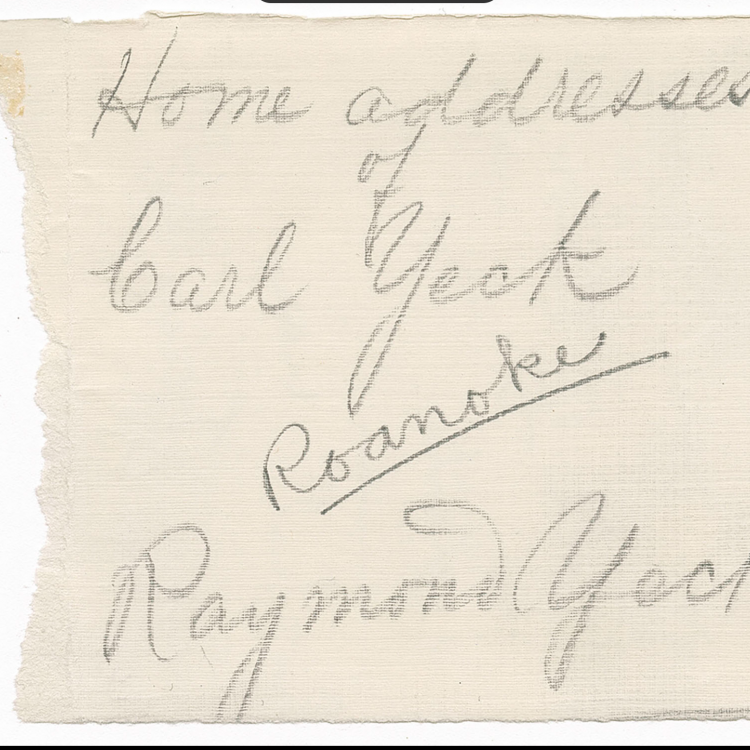 Home addresses
of
Carl
Roanoke
Raymond